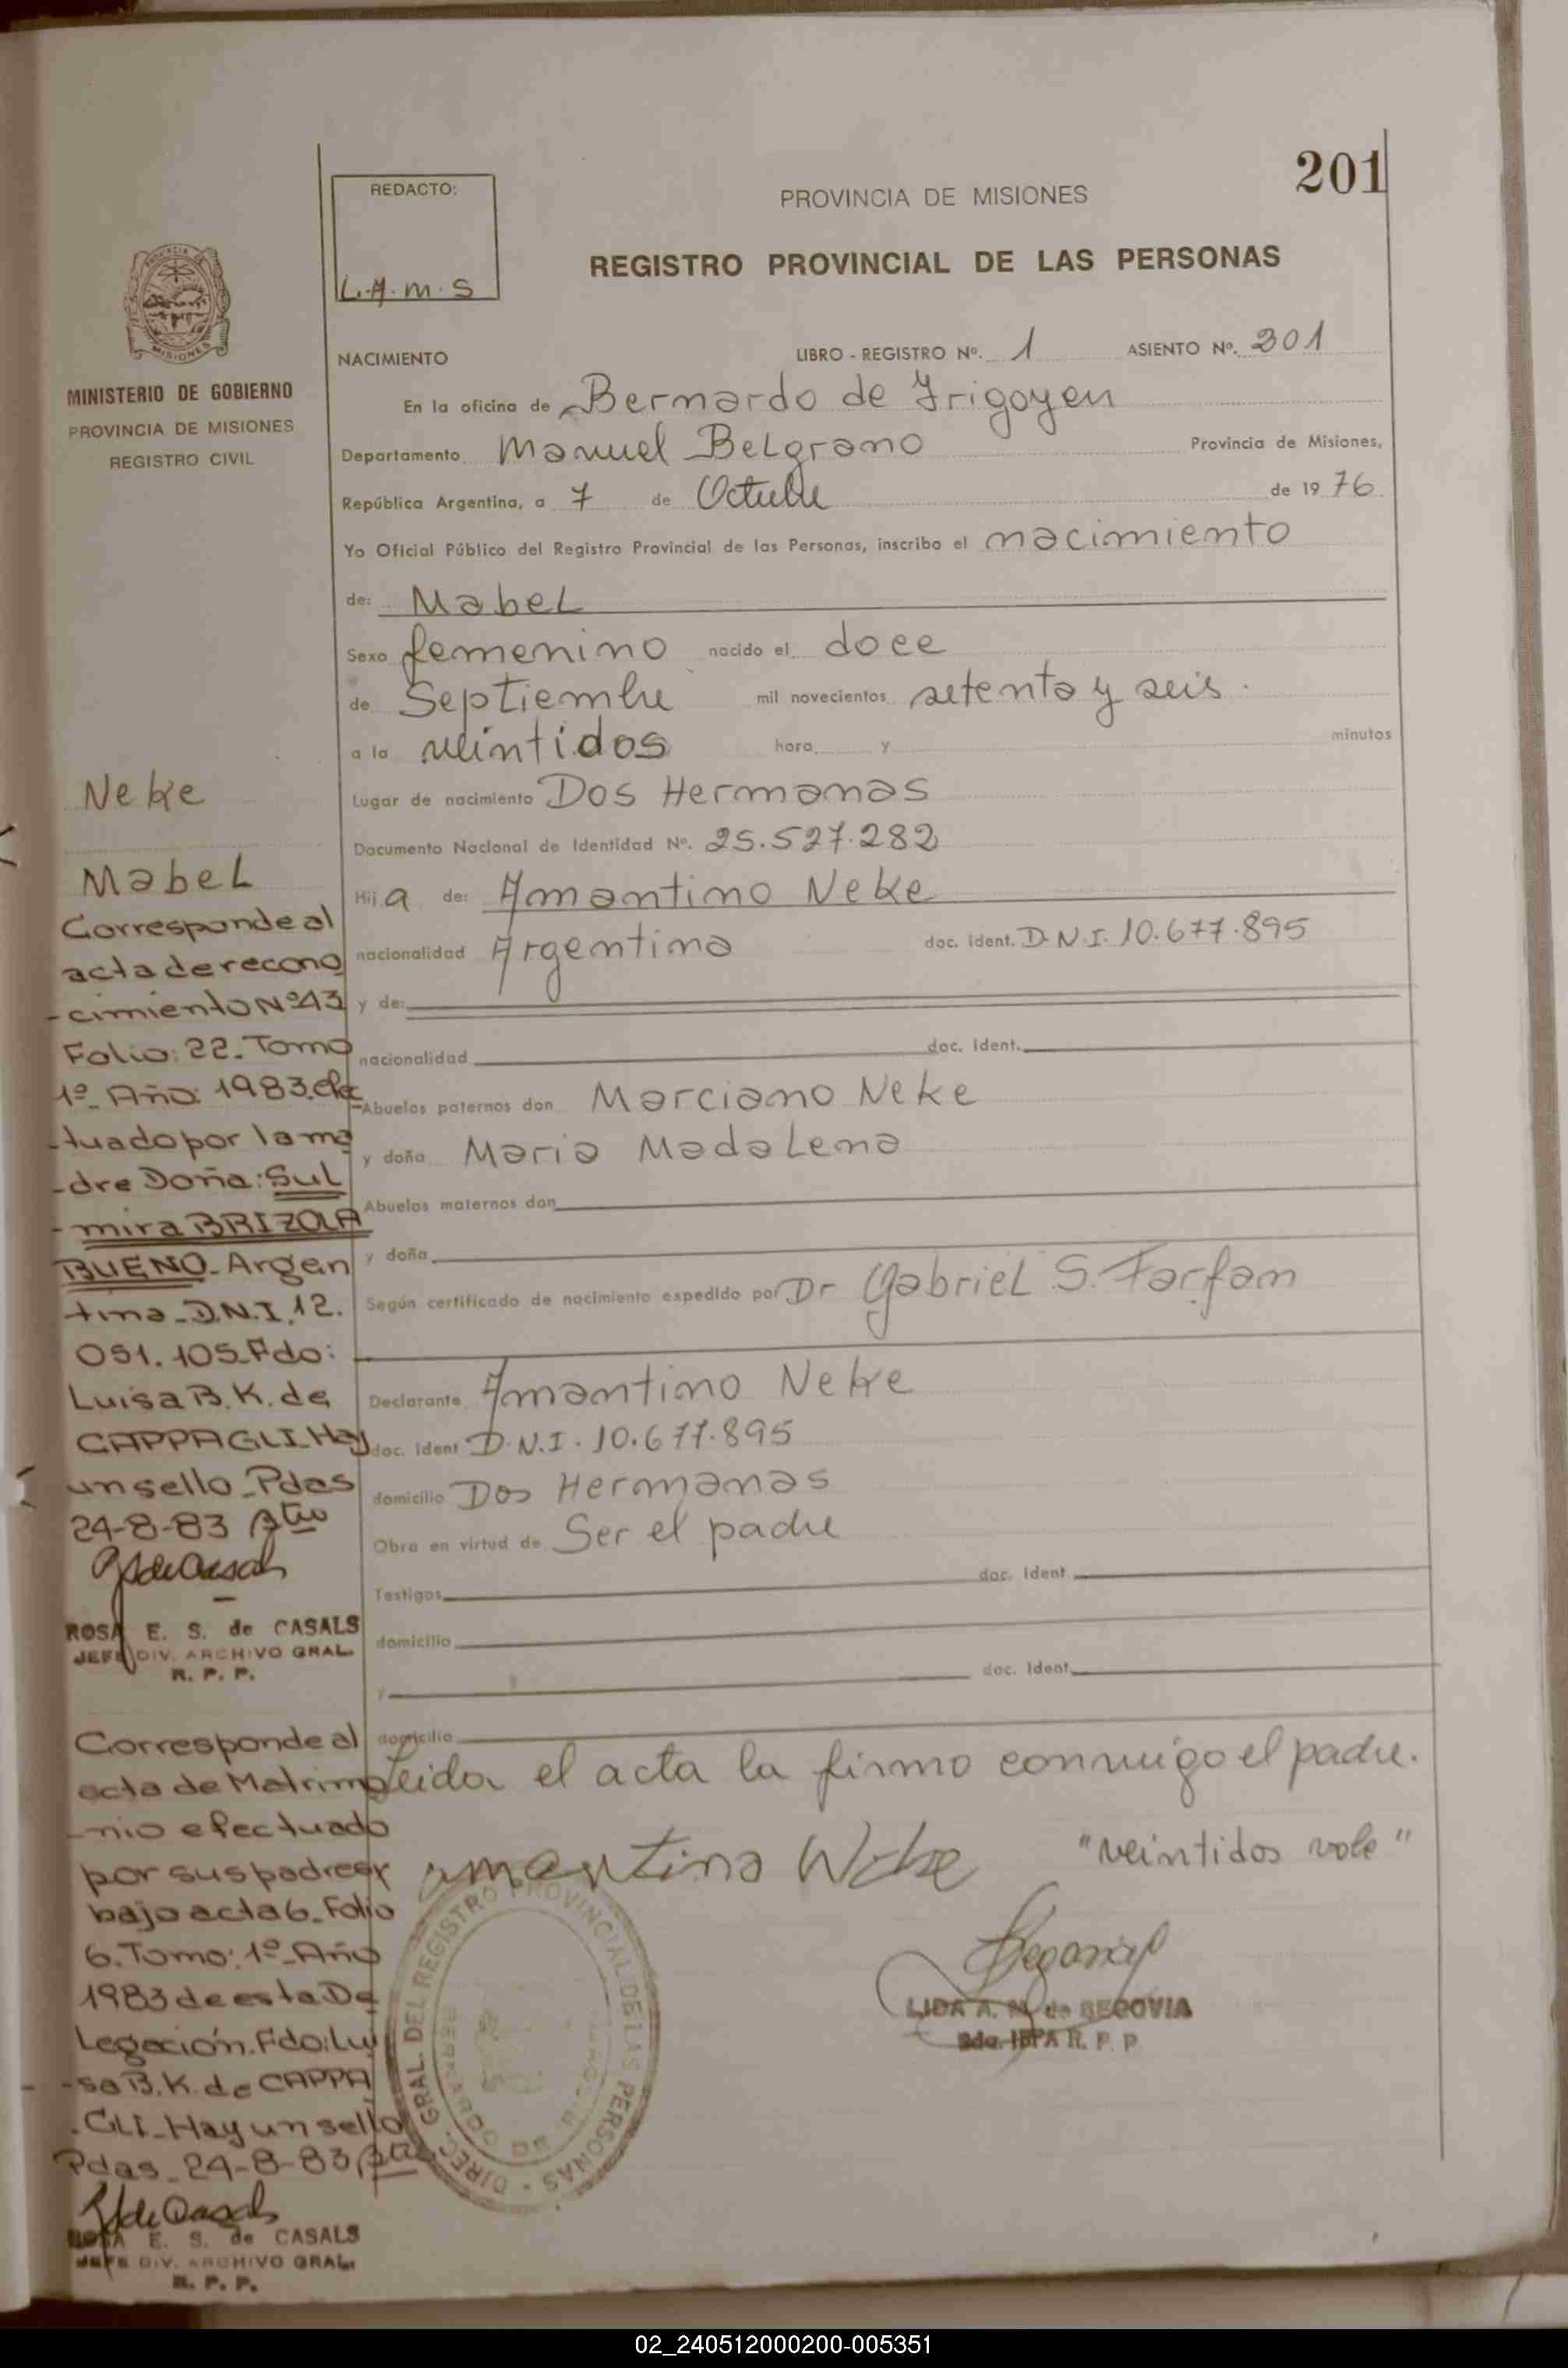 201
REDACTO:
L.A.M.S
PROVINCIA DE MISIONES
REGISTRO PROVINCIAL DE LAS PERSONAS
MISIONES
MINISTERIO DE GOBIERNO
PROVINCIA DE MISIONES
REGISTRO CIVIL
NACIMIENTO LIBRO - REGISTRO Nº. 1 ASIENTO Nº. 201
En la oficina de Bernardo de Irigoyen
Departamento Manuel Belgrano Provincia de Misiones,
República Argentina, a 7 de Octubre de 1976
Yo Oficial Público del Registro Provincial de las Personas, inscribo el nacimiento
de: Mabel
Sexo femenino nacido el doce
de Septiembre mil novecientos setenta y seis.
a la veintidos hora y minutos
Lugar de nacimiento Dos Hermanas
Documento Nacional de Identidad Nº. 25.527.282
Hija de: Amantino Neke
nacionalidad Argentina doc. ident. D.N.I. 10.677.895
y de:
nacionalidad doc. ident.
Abuelos paternos don Marciano Neke
y doña Maria Madalena
Abuelos maternos don
y doña
Según certificado de nacimiento expedido por Dr Gabriel S. Farfan
Declarante Amantino Neke
doc. ident D.N.I. 10.677.895
domicilio Dos Hermanas
Obra en virtud de Ser el padre
Testigos doc. Ident
domicilio
y doc. Ident
domicilio
Leida el acta la firmo conmigo el padre.
Amantino Neke "veintidos vale"
LIDA A. N. de SEGOVIA
R. P. P
DIREC. GRAL. DEL REGISTRO PROVINCIAL DE LAS PERSONAS
BERNARDO DE IRIGOYEN
Neke
Mabel
Corresponde al
acta de recono
-cimiento Nº43
Folio: 22. Tomo
1º. Año: 1983. efec
-tuado por la ma
-dre Doña: Sul
-mira BRIZOLA
BUENO. Argen
tina. D.N.I. 12.
051.105. Fdo:
Luisa B. K. de
CAPPAGLI. Hay
un sello. Pdas
24-8-83
ROSA E. S. de CASALS
JEFE DIV. ARCHIVO GRAL.
R. P. P.
Corresponde al
acta de Matrimo
-nio efectuado
por sus padres
bajo acta 6. Folio
6. Tomo: 1º. Año
1983 de esta De
Legación. Fdo: Lui
-sa B. K. de CAPPA
.GLI. Hay un sello
Pdas. 24-8-83
ROSA E. S. de CASALS
JEFE DIV. ARCHIVO GRAL.
R. P. P.
02_240512000200-005351